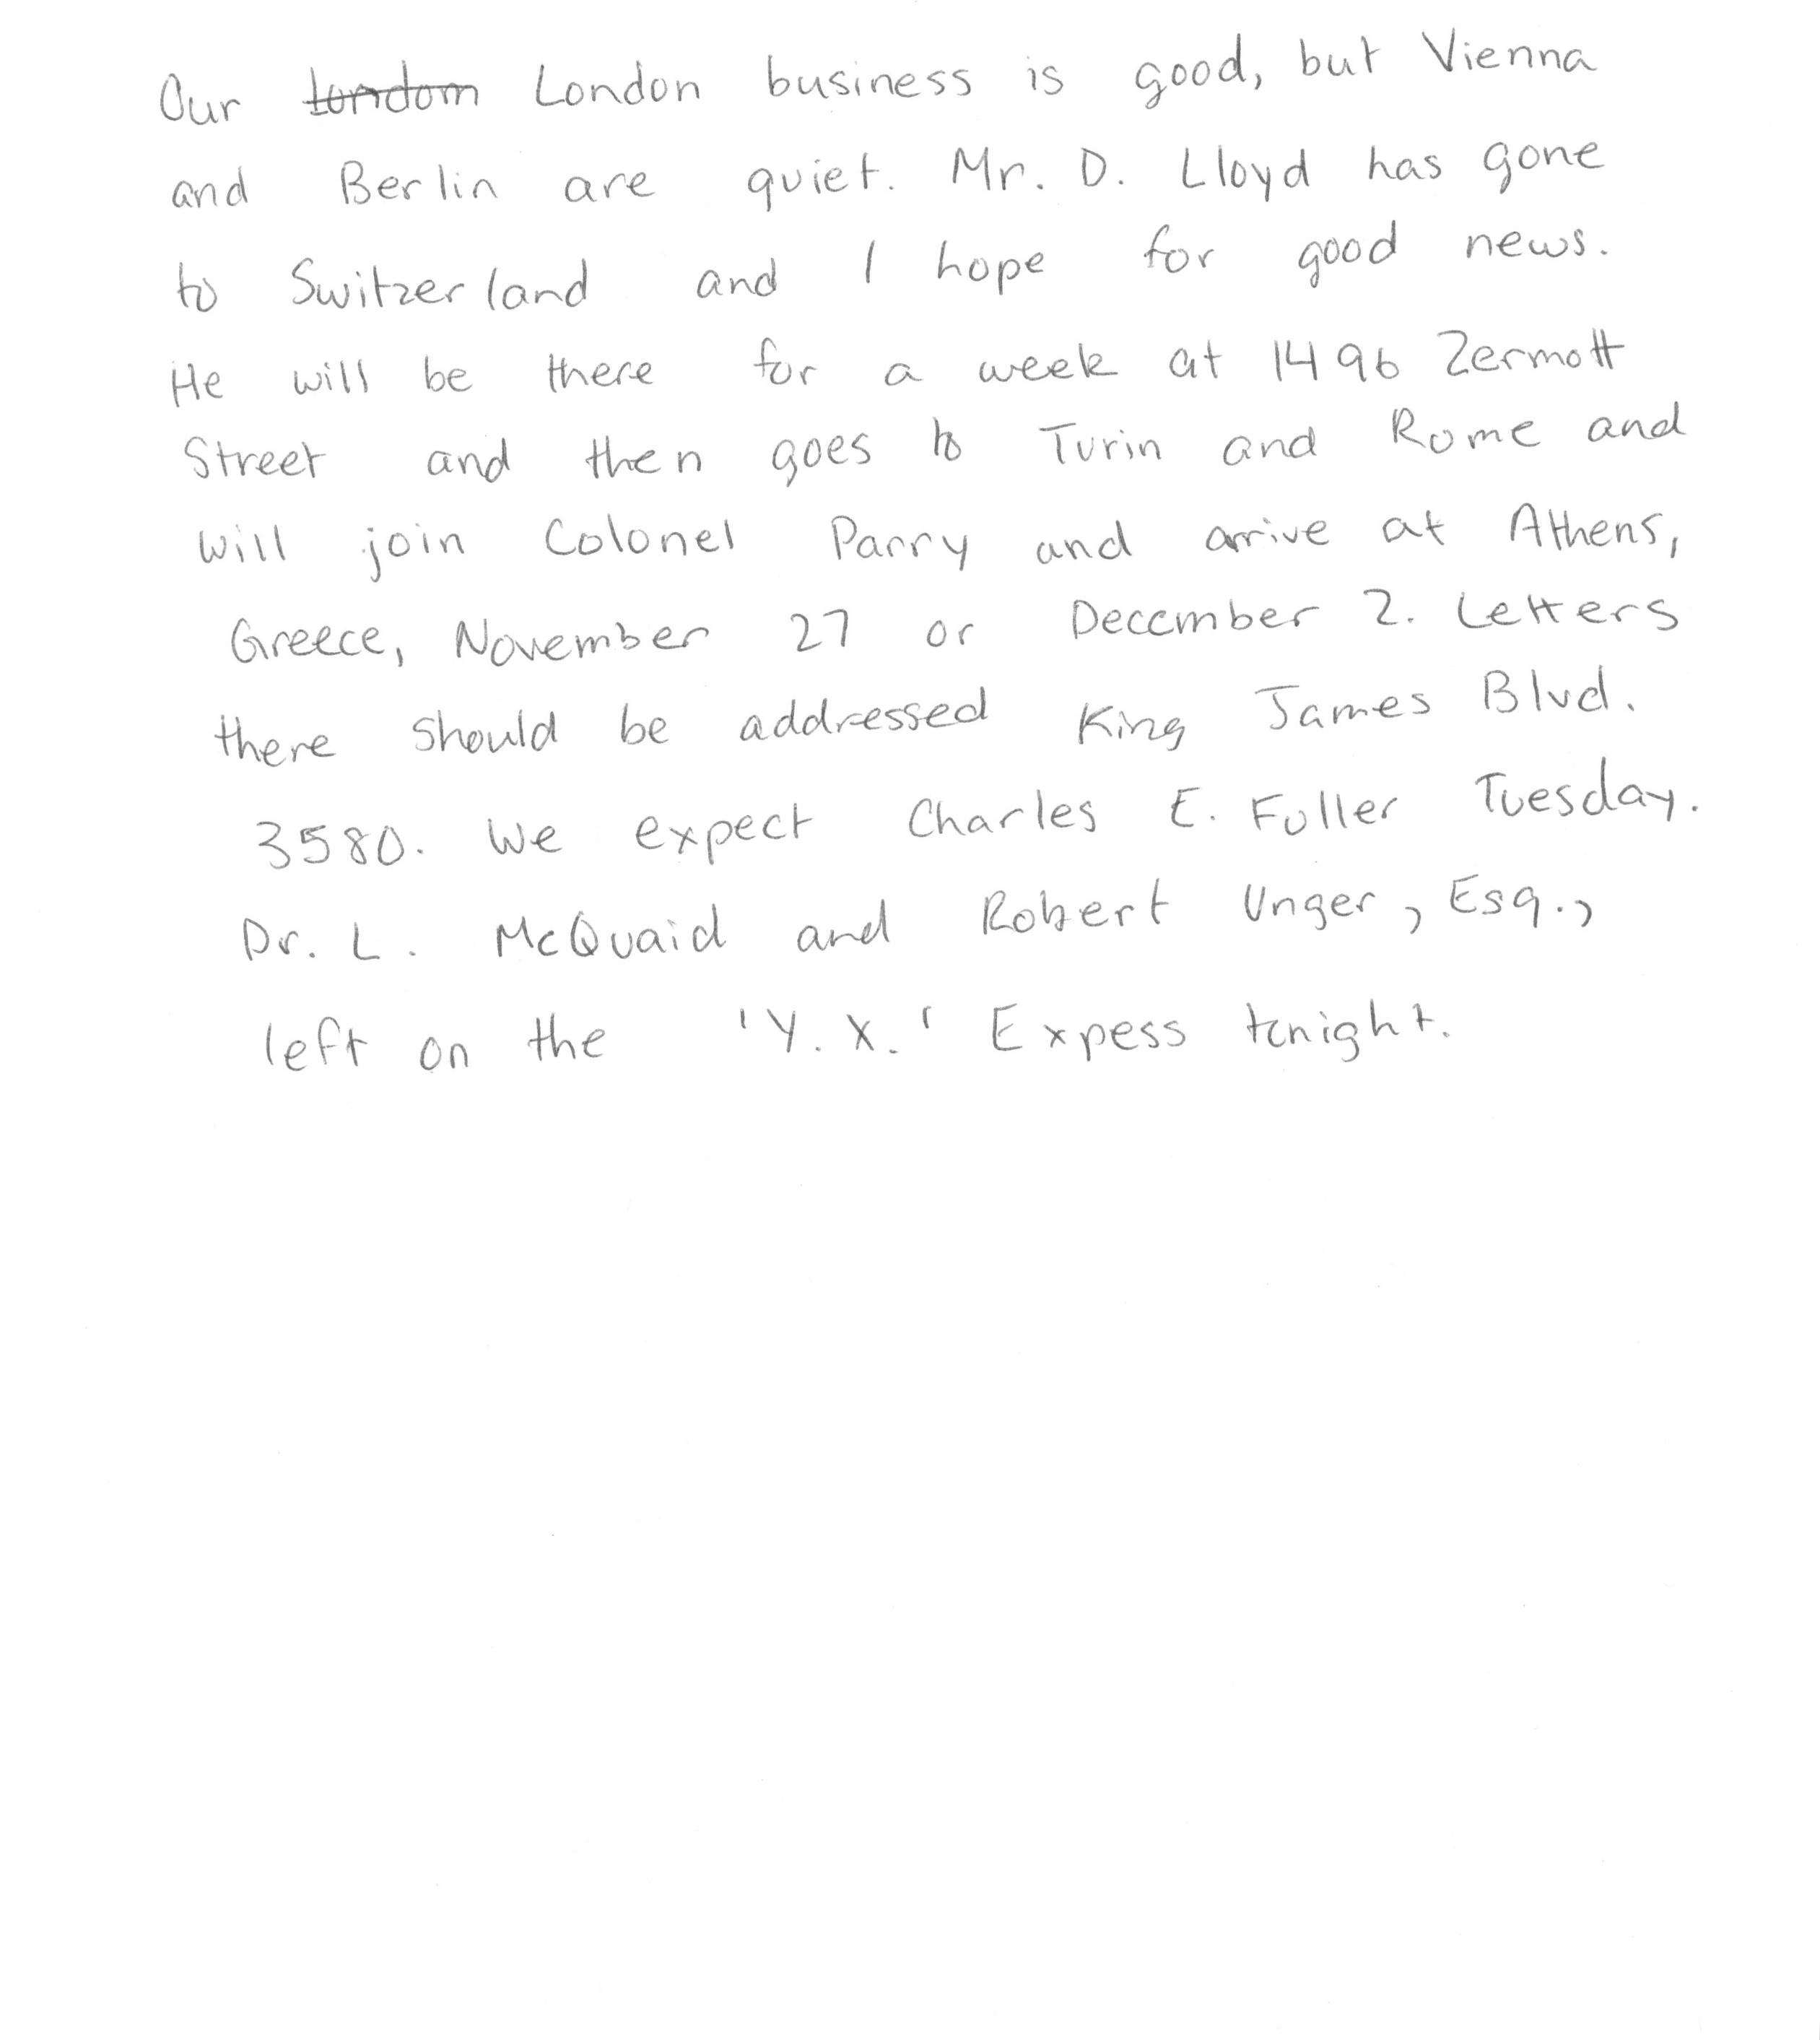 Our London business is good, but Vienna
and Berlin are quiet. Mr. D. Lloyd has gone
to Switzerland and I hope for good news.
He will be there for a week at 1496 Zermott
Street and then goes to Turin and Rome and
will join Colonel Parry and arrive at Athens,
Greece, November 27 or December 2. Letters
there should be addressed King James Blvd.
3580. We expect Charles E. Fuller Tuesday.
Dr. L. McQuaid and Robert Unger, Esq.,
left on the 'Y. X.' Expess tonight.